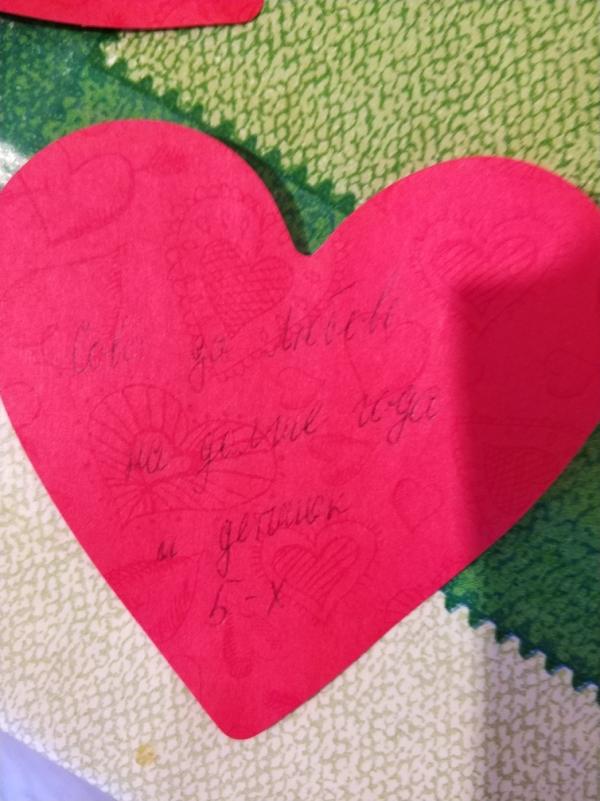 Совет да Любовь
на долгие года
и детишек
5-х